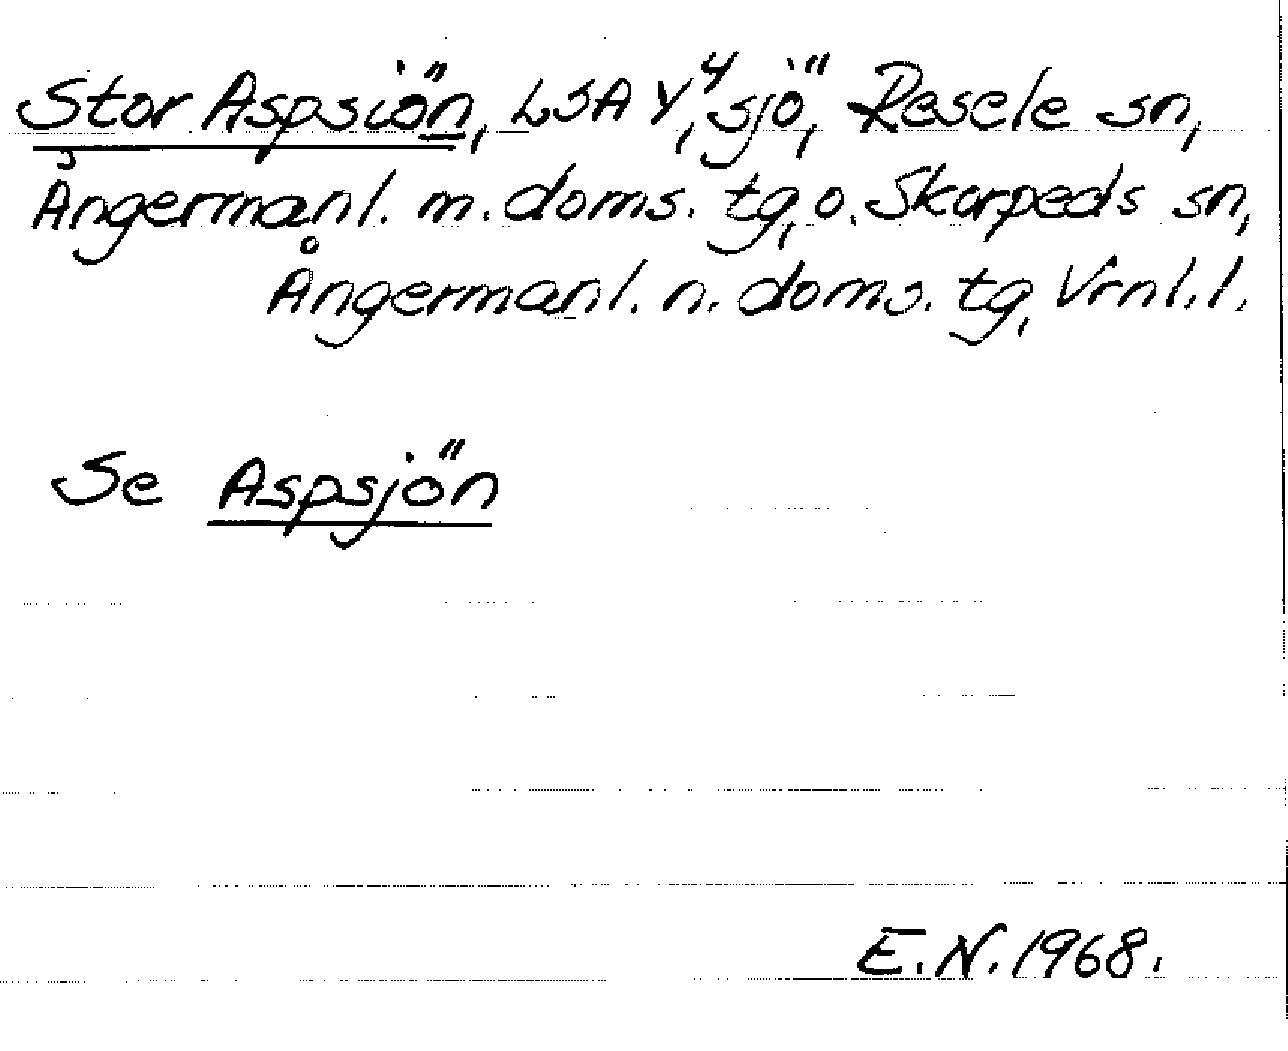 Stor Aspsjön, LSA Y⁴, sjö, Resele sn,
Ångermanl. m. doms. tg, o. Skorpeds sn,
Ångermanl. n. doms. tg, Vrnl.l.
Se Aspsjön
E.N. 1968.